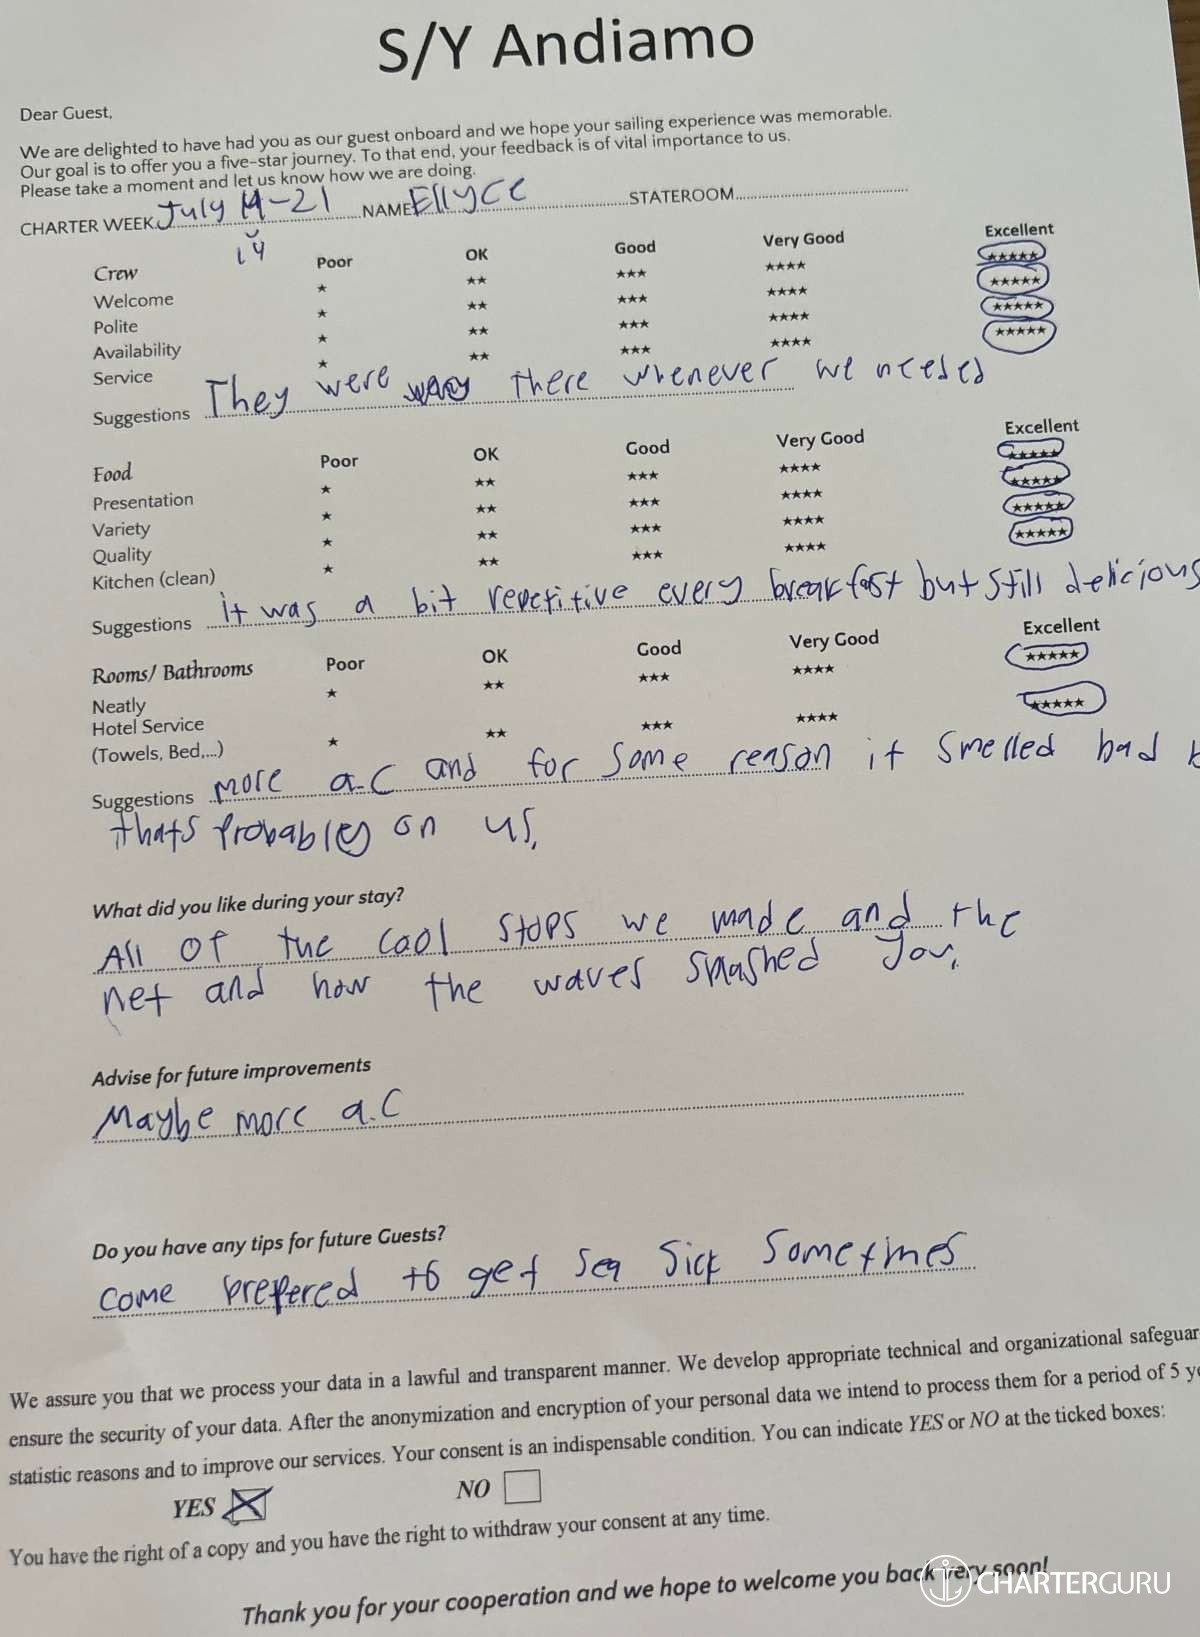 S/Y Andiamo
Dear Guest,
We are delighted to have had you as our guest onboard and we hope your sailing experience was memorable.
Our goal is to offer you a five-star journey. To that end, your feedback is of vital importance to us.
Please take a moment and let us know how we are doing.
CHARTER WEEK July 14-21 NAME Ellyce STATEROOM
14
Crew Poor OK Good Very Good Excellent
Welcome ★ ★★ ★★★ ★★★★ ★★★★★
Polite ★ ★★ ★★★ ★★★★ ★★★★★
Availability ★ ★★ ★★★ ★★★★ ★★★★★
Service ★ ★★ ★★★ ★★★★ ★★★★★
Suggestions They were there whenever we needed
Food Poor OK Good Very Good Excellent
Presentation ★ ★★ ★★★ ★★★★ ★★★★★
Variety ★ ★★ ★★★ ★★★★ ★★★★★
Quality ★ ★★ ★★★ ★★★★ ★★★★★
Kitchen (clean) ★ ★★ ★★★ ★★★★ ★★★★★
Suggestions it was a bit repetitive every breakfast but still delicious
Rooms/ Bathrooms Poor OK Good Very Good Excellent
Neatly ★ ★★ ★★★ ★★★★ ★★★★★
Hotel Service
(Towels, Bed,...) ★ ★★ ★★★ ★★★★ ★★★★★
Suggestions more a.c and for some reason it smelled bad
thats probabley on us.
What did you like during your stay?
All of the cool stops we made and the
net and how the waves splashed you.
Advise for future improvements
Maybe more a.c
Do you have any tips for future Guests?
come prepered to get sea sick sometimes
We assure you that we process your data in a lawful and transparent manner. We develop appropriate technical and organizational safeguar
ensure the security of your data. After the anonymization and encryption of your personal data we intend to process them for a period of 5 ye
statistic reasons and to improve our services. Your consent is an indispensable condition. You can indicate YES or NO at the ticked boxes:
YES NO
You have the right of a copy and you have the right to withdraw your consent at any time.
Thank you for your cooperation and we hope to welcome you back very soon!
CHARTERGURU